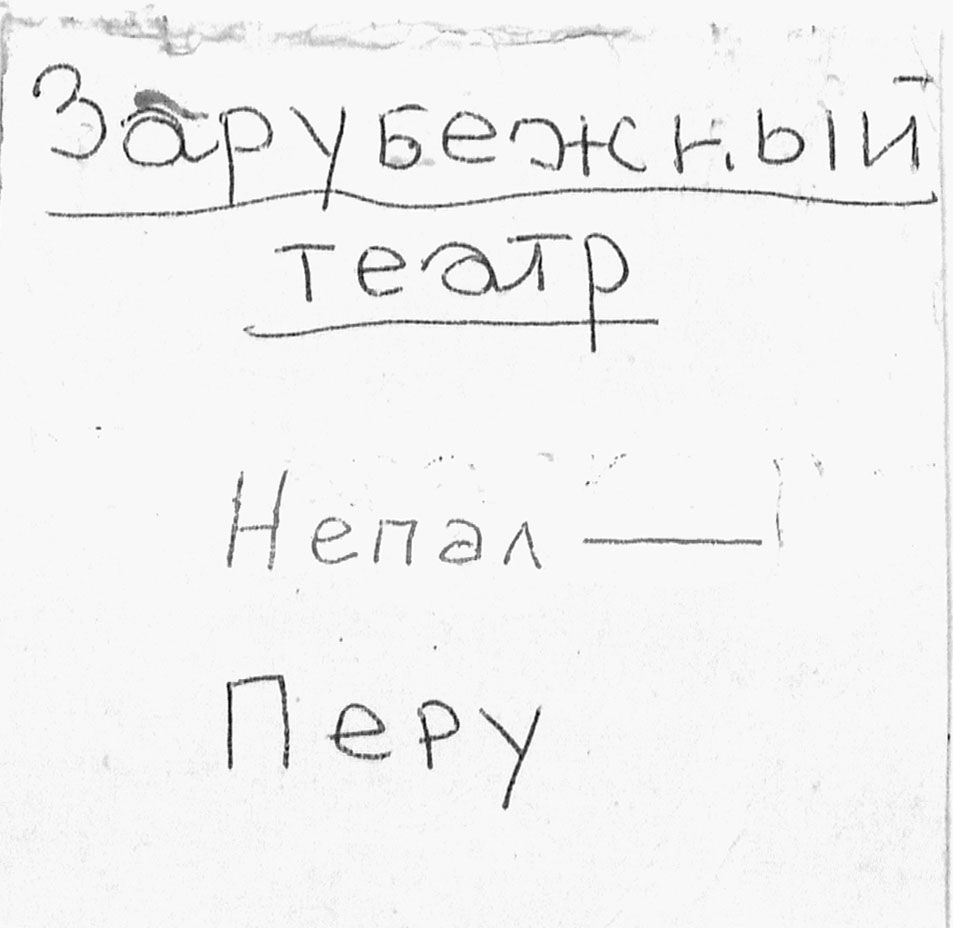 Зарубежный
театр
Непал —
Перу